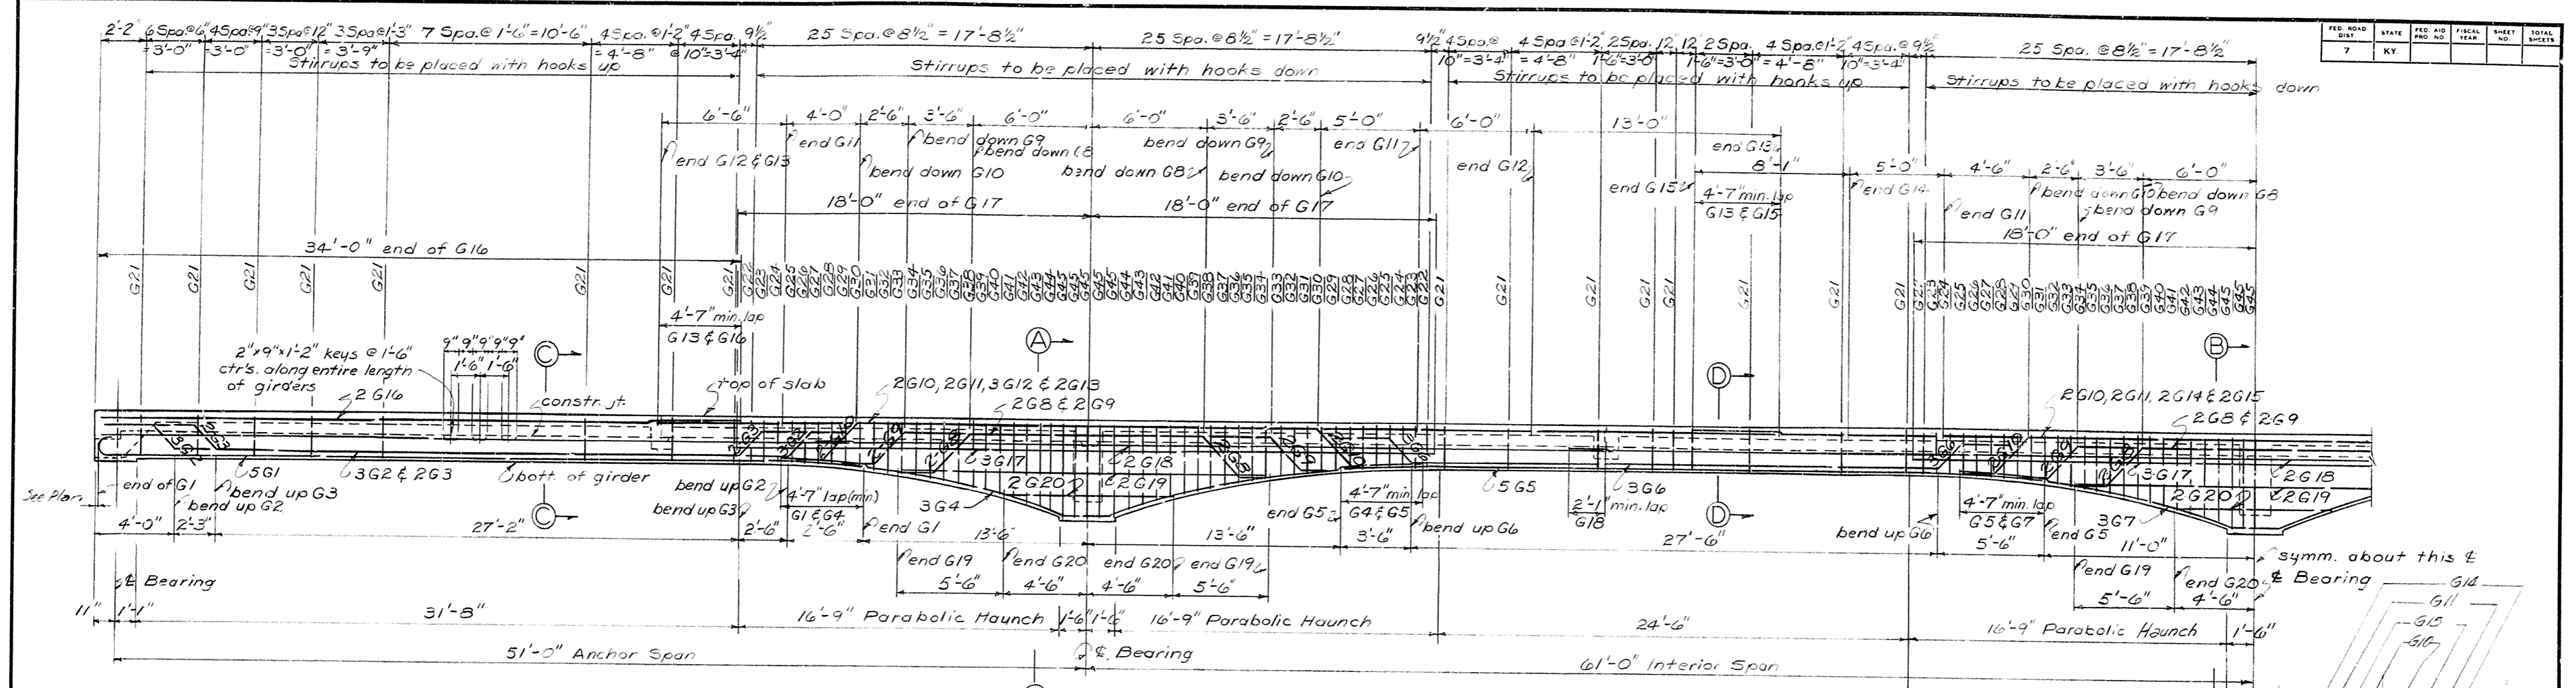 2'-2" 6 Spa.@6" 4 Spa@9" 3 Spa@12" 3 Spa@1'-3" 7 Spa.@ 1'-6"=10'-6" 4 Spa.@1'-2" 4 Spa. 9½" 25 Spa.@8½"=17'-8½" 25 Spa.@8½"=17'-8½" 9½" 4 Spa.@ 4 Spa@1'-2" 2 Spa. 12" 12" 2 Spa. 4 Spa.@1'-2" 4 Spa.@ 9½" 25 Spa. @8½"=17'-8½"
=3'-0" =3'-0" =3'-0" =3'-9" =4'-8" @10"=3'-4" 10"=3'-4" =4'-8" 1'-6"=3'-0" 1'-6"=3'-0" =4'-8" 10"=3'-4"
Stirrups to be placed with hooks up
Stirrups to be placed with hooks down
Stirrups to be placed with hooks up
Stirrups to be placed with hooks down
FED. ROAD DIST. STATE FED. AID PRO. NO. FISCAL YEAR SHEET NO. TOTAL SHEETS
7 KY.
6'-6" 4'-0" 2'-6" 3'-6" 6'-0" 6'-0" 3'-6" 2'-6" 5'-0" 6'-0" 13'-0"
end G12 & G13 end G11 bend down G9
bend down G8
bend down G10
bend down G9 end G11
bend down G8 bend down G10
end G12 end G13
8'-1" 5'-0" 4'-6" 2'-6" 3'-6" 6'-0"
end G15 4'-7" min. lap
G13 & G15
end G14 bend down G10 bend down G8
end G11 bend down G9
34'-0" end of G16
18'-0" end of G17
18'-0" end of G17
18'-0" end of G17
G21 G21 G21 G21 G21 G21 G21 G21 G22 G23 G24 G25 G26 G27 G28 G29 G30 G31 G32 G33 G34 G35 G36 G37 G38 G39 G40 G41 G42 G43 G44 G45 G45 G45 G45 G45 G44 G43 G42 G41 G40 G39 G38 G37 G36 G35 G34 G33 G32 G31 G30 G29 G28 G27 G26 G25 G24 G23 G22 G21 G21 G21 G21 G21 G21 G21 G21 G23 G24 G25 G26 G27 G28 G29 G30 G31 G32 G33 G34 G35 G36 G37 G38 G39 G40 G41 G42 G43 G44 G45 G45 G45
4'-7" min. lap
G13 & G16
2"x9"x1'-2" keys @ 1'-6"
ctr's. along entire length
of girders
9" 9" 9" 9" 9"
1'-6" 1'-6"
C A D B
2 G16
constr. jt.
top of slab
2G10, 2G11, 3G12 & 2G13
2G8 & 2G9
2G10, 2G11, 2G14 & 2G15
2G8 & 2G9
3G2 2G3 2G3 3G2 2G10 2G9 2G8 2G8 2G9 2G10 3G6 3G6 2G10 2G9 2G8
5G1 3G2 & 2G3 bott. of girder
3G17 2G18
2G20 2G19
3G4
5G5 3G6
3G17 2G18
2G20 2G19
3G7
See Plan
end of G1 bend up G3
bend up G2
bend up G2
bend up G3
4'-7" lap (min.)
G1 & G4
end G1
4'-7" min. lap
G4 & G5
end G5 bend up G6
2'-1" min. lap
G18
bend up G6
4'-7" min. lap
G5 & G7
end G5
4'-0" 2'-3" 27'-2" 2'-6" 2'-6" 13'-6" 13'-6" 3'-6" 27'-6" 5'-6" 11'-0"
symm. about this ℄
℄ Bearing
end G19 end G20 end G20 end G19
5'-6" 4'-6" 4'-6" 5'-6"
end G19 end G20
5'-6" 4'-6"
℄ Bearing
G14
G11
G15
G10
11" 1'-1" 31'-8" 16'-9" Parabolic Haunch 1'-6" 1'-6" 16'-9" Parabolic Haunch 24'-6" 16'-9" Parabolic Haunch 1'-6"
51'-0" Anchor Span ℄ Bearing 61'-0" Interior Span